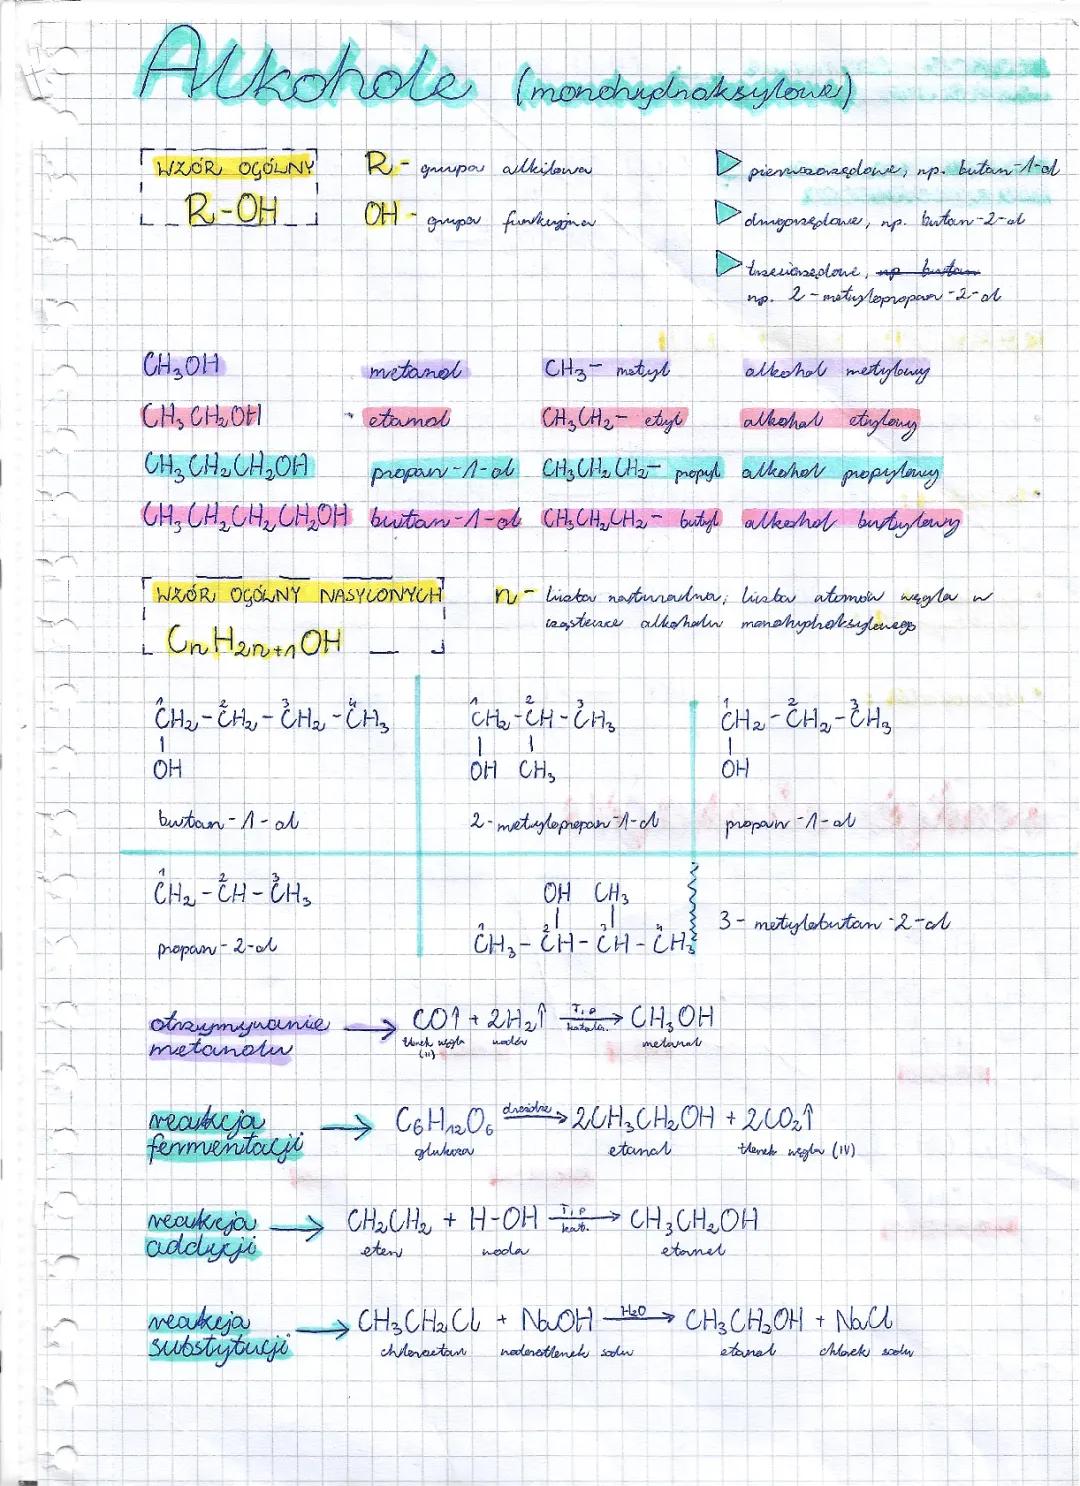 Alkohole (monohydroksylowe)
WZÓR OGÓLNY
R-OH
R - grupa alkilowa
OH - grupa funkcyjna
pierwszorzędowe, np. butan-1-ol
drugorzędowe, np. butan-2-ol
trzeciorzędowe, np butan
np. 2-metylopropan-2-ol
CH₃OH metanol CH₃- metyl alkohol metylowy
CH₃CH₂OH etanol CH₃CH₂- etyl alkohol etylowy
CH₃CH₂CH₂OH propan-1-ol CH₃CH₂CH₂- propyl alkohol propylowy
CH₃CH₂CH₂CH₂OH butan-1-ol CH₃CH₂CH₂- butyl alkohol butylowy
WZÓR OGÓLNY NASYCONYCH
CnH2n+1OH
n - liczba naturalna; liczba atomów węgla w
cząsteczce alkoholu monohydroksylowego
1 2 3 4
CH₂-CH₂-CH₂-CH₃
OH
butan-1-ol
1 2 3
CH₂-CH-CH₃
OH CH₃
2-metylopropan-1-ol
1 2 3
CH₂-CH₂-CH₃
OH
propan-1-ol
1 2 3
CH₂-CH-CH₃
propan-2-ol
OH CH₃
1 2 3 4
CH₃-CH-CH-CH₃
3-metylobutan-2-ol
otrzymywanie
metanolu
→ CO↑ + 2H₂↑ T,p kataliz. → CH₃OH
tlenek węgla (II) wodór metanol
reakcja
fermentacji
→ C₆H₁₂O₆ drożdże → 2CH₃CH₂OH + 2CO₂↑
glukoza etanol tlenek węgla (IV)
reakcja
addycji
→ CH₂CH₂ + H-OH T,p kat. → CH₃CH₂OH
eten woda etanol
reakcja
substytucji
→ CH₃CH₂Cl + NaOH H₂O → CH₃CH₂OH + NaCl
chloroetan wodorotlenek sodu etanol chlorek sodu